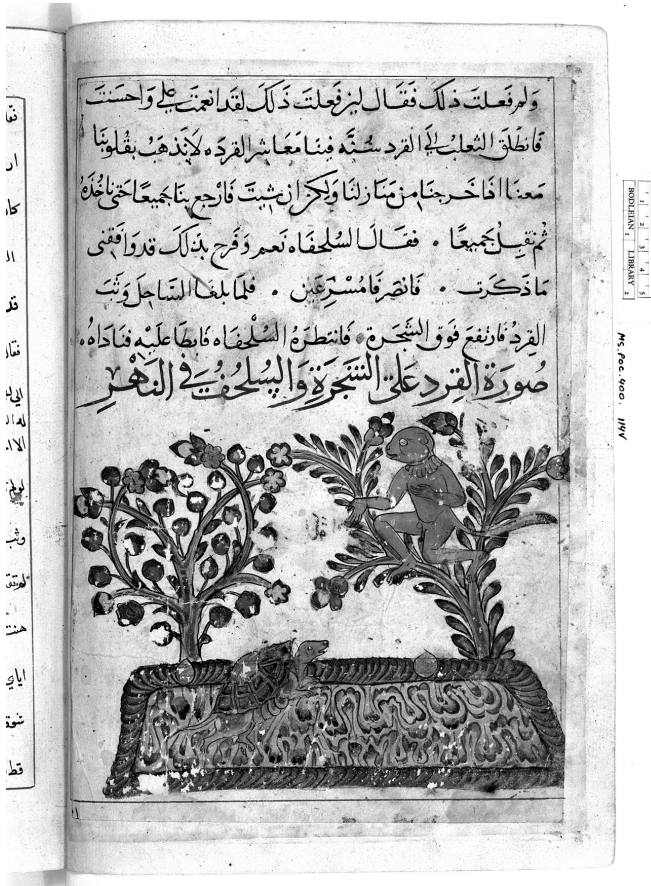 ولم فعلت ذلك فقال لين فعلت ذلك لقد انعمت علي واحسنت
فانطلق الثعلب الى القرد سنه فينا معاشر القرده لا نذهب بقلوبنا
معنا اذا خرجنا من منازلنا ولكن ان شيت فارجع بنا جميعا حتى ناخذه
ثم نقبل جميعا . فقال السلحفاه نعم وفرح بذلك قد وافقنى
ما ذكرت . فانصرفا مسرعين . فلما بلغا الساحل وثب
القرد فارتفع فوق الشجرة . فانتظره السلحفاه فابطا عليه فناداه
صورة القرد على الشجرة والسلحف في النهر
BODLEIAN LIBRARY
1 2 3 4 5
2
MS. Poc. 400. 114v